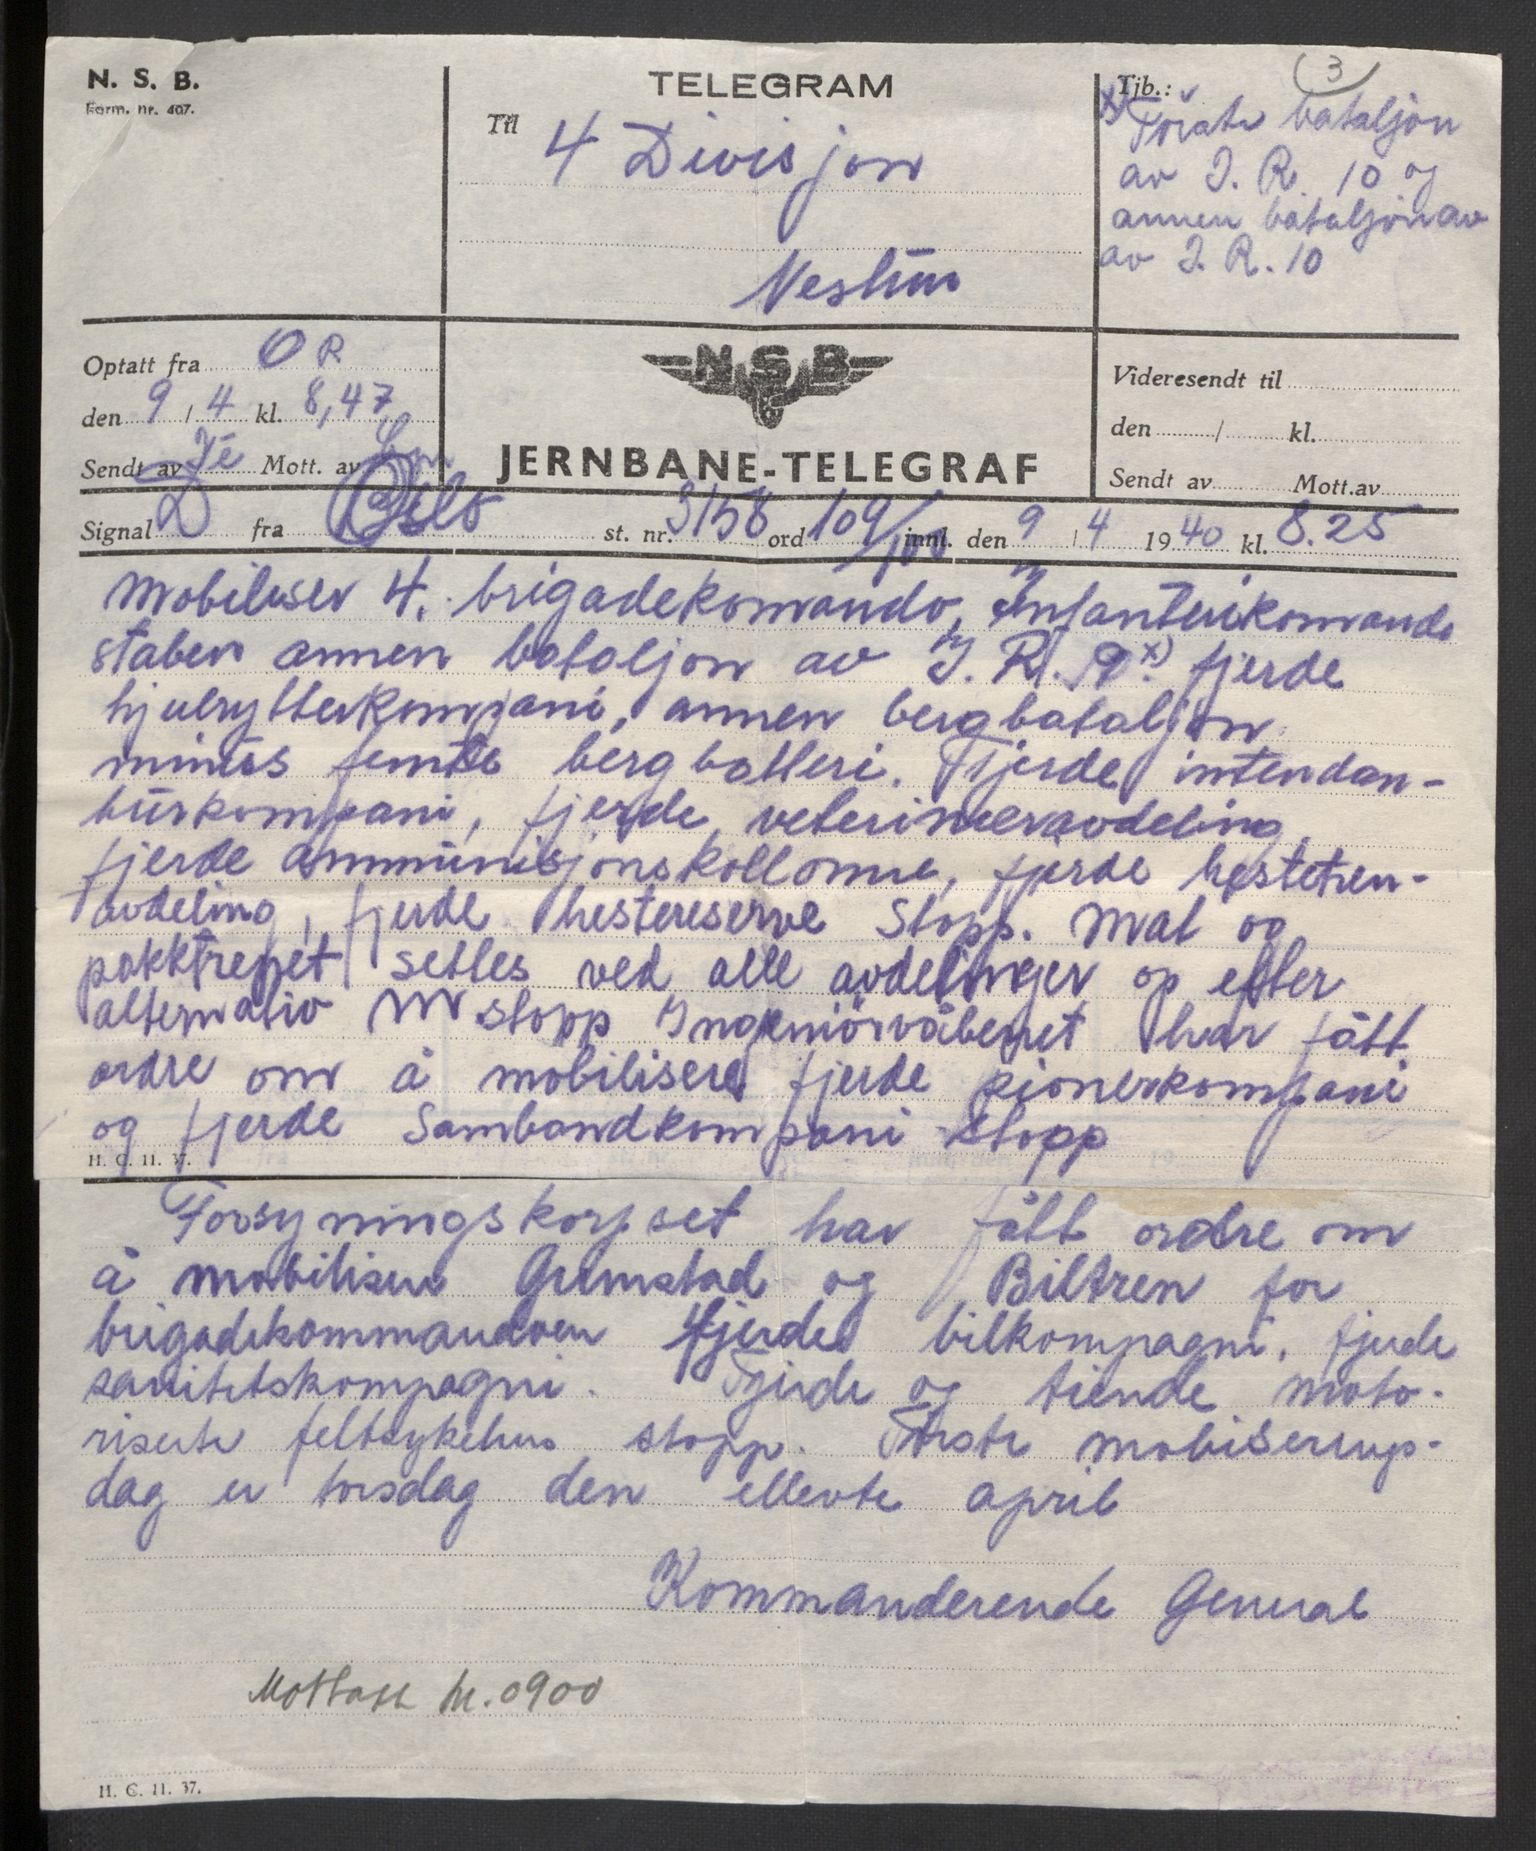 N. S. B.
Form. nr. 407.
TELEGRAM
Til 4 Divisjon
Nestun
3
Tjb.:
x) Første bataljon
av I. R. 10 og
annen bataljon av
av I. R. 10
Optatt fra OR
den 9 / 4 kl. 8,47
Sendt av Jé Mott. av
N S B
JERNBANE-TELEGRAF
Videresendt til
den / kl.
Sendt av Mott.av
Signal D fra Oslo st. nr. 3158 ord 109/100 innl. den 9 / 4 1940 kl. 8.25
Mobiliser 4. brigadekomando, Infanterikomando
staben annen bataljon av I. R. 9 x) fjerde
hjulrytterkompani, annen bergbataljon
minus femte bergbatteri. Fjerde intendan-
turkompani, fjerde veterinæravdeling,
fjerde ammunisjonskollonne, fjerde hestetren-
avdeling, fjerde hestereserve Stopp. Mat og
pakktrenet settes ved alle avdelinger op efter
alternativ stopp Ingeniørvåbenet har fått
ordre om å mobilisere fjerde pionerkompani
og fjerde Sambandkompani stopp
H. C. 11. 37.
Forsyningskorpset har fått ordre om
å mobilisere Grimstad og Biltren for
brigadekommandoen fjerde bilkompagni, fjerde
sanitetskompagni. Fjerde og tiende moto-
riserte feltsykehus stopp. Første mobiserings-
dag er torsdag den ellevte april
Kommanderende General
Mottatt kl. 0900
H. C. 11. 37.